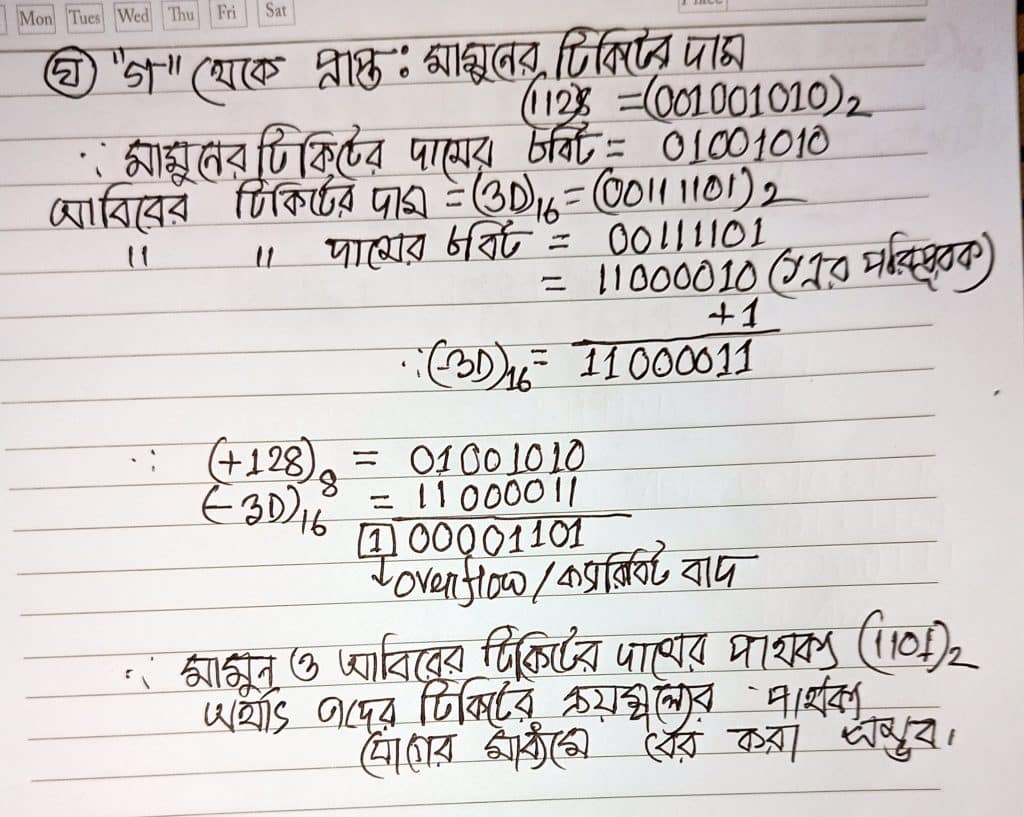 Mon Tues Wed Thu Fri Sat
ঘ "গ" থেকে প্রাপ্ত: মামুনের টিকিটের দাম
(112)8 =(001001010)2
∴ মামুনের টিকিটের দামের ৮বিট = 01001010
আবিরের টিকিটের দাম = (3D)16 = (00111101)2
" " দামের ৮বিট = 00111101
= 11000010 (১এর পরিপূরক)
+1
∴(-3D)16 = 11000011
∴ (+128)8 = 01001010
(-3D)16 = 11000011
1 00001101
↓overflow/ক্যারিবিট বাদ
∴ মামুন ও আবিরের টিকিটের দামের পার্থক্য (1101)2
অর্থাৎ এদের টিকিটের ক্রয়মূল্যের পার্থক্য
যোগের মাধ্যমে বের করা সম্ভব।